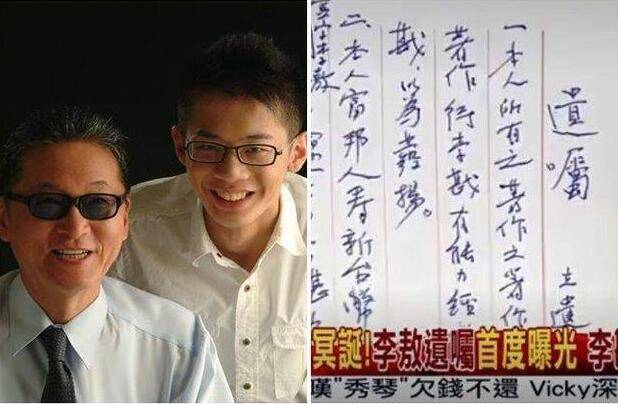 遺囑。 立遺
一本人所有之著作之著作
著作衍李戡有能力經
戡，以為發揚。
二、本人富邦人壽新台幣
冥誕!李敖遺囑首度曝光 李
嘆"秀琴"欠錢不還 Vicky深